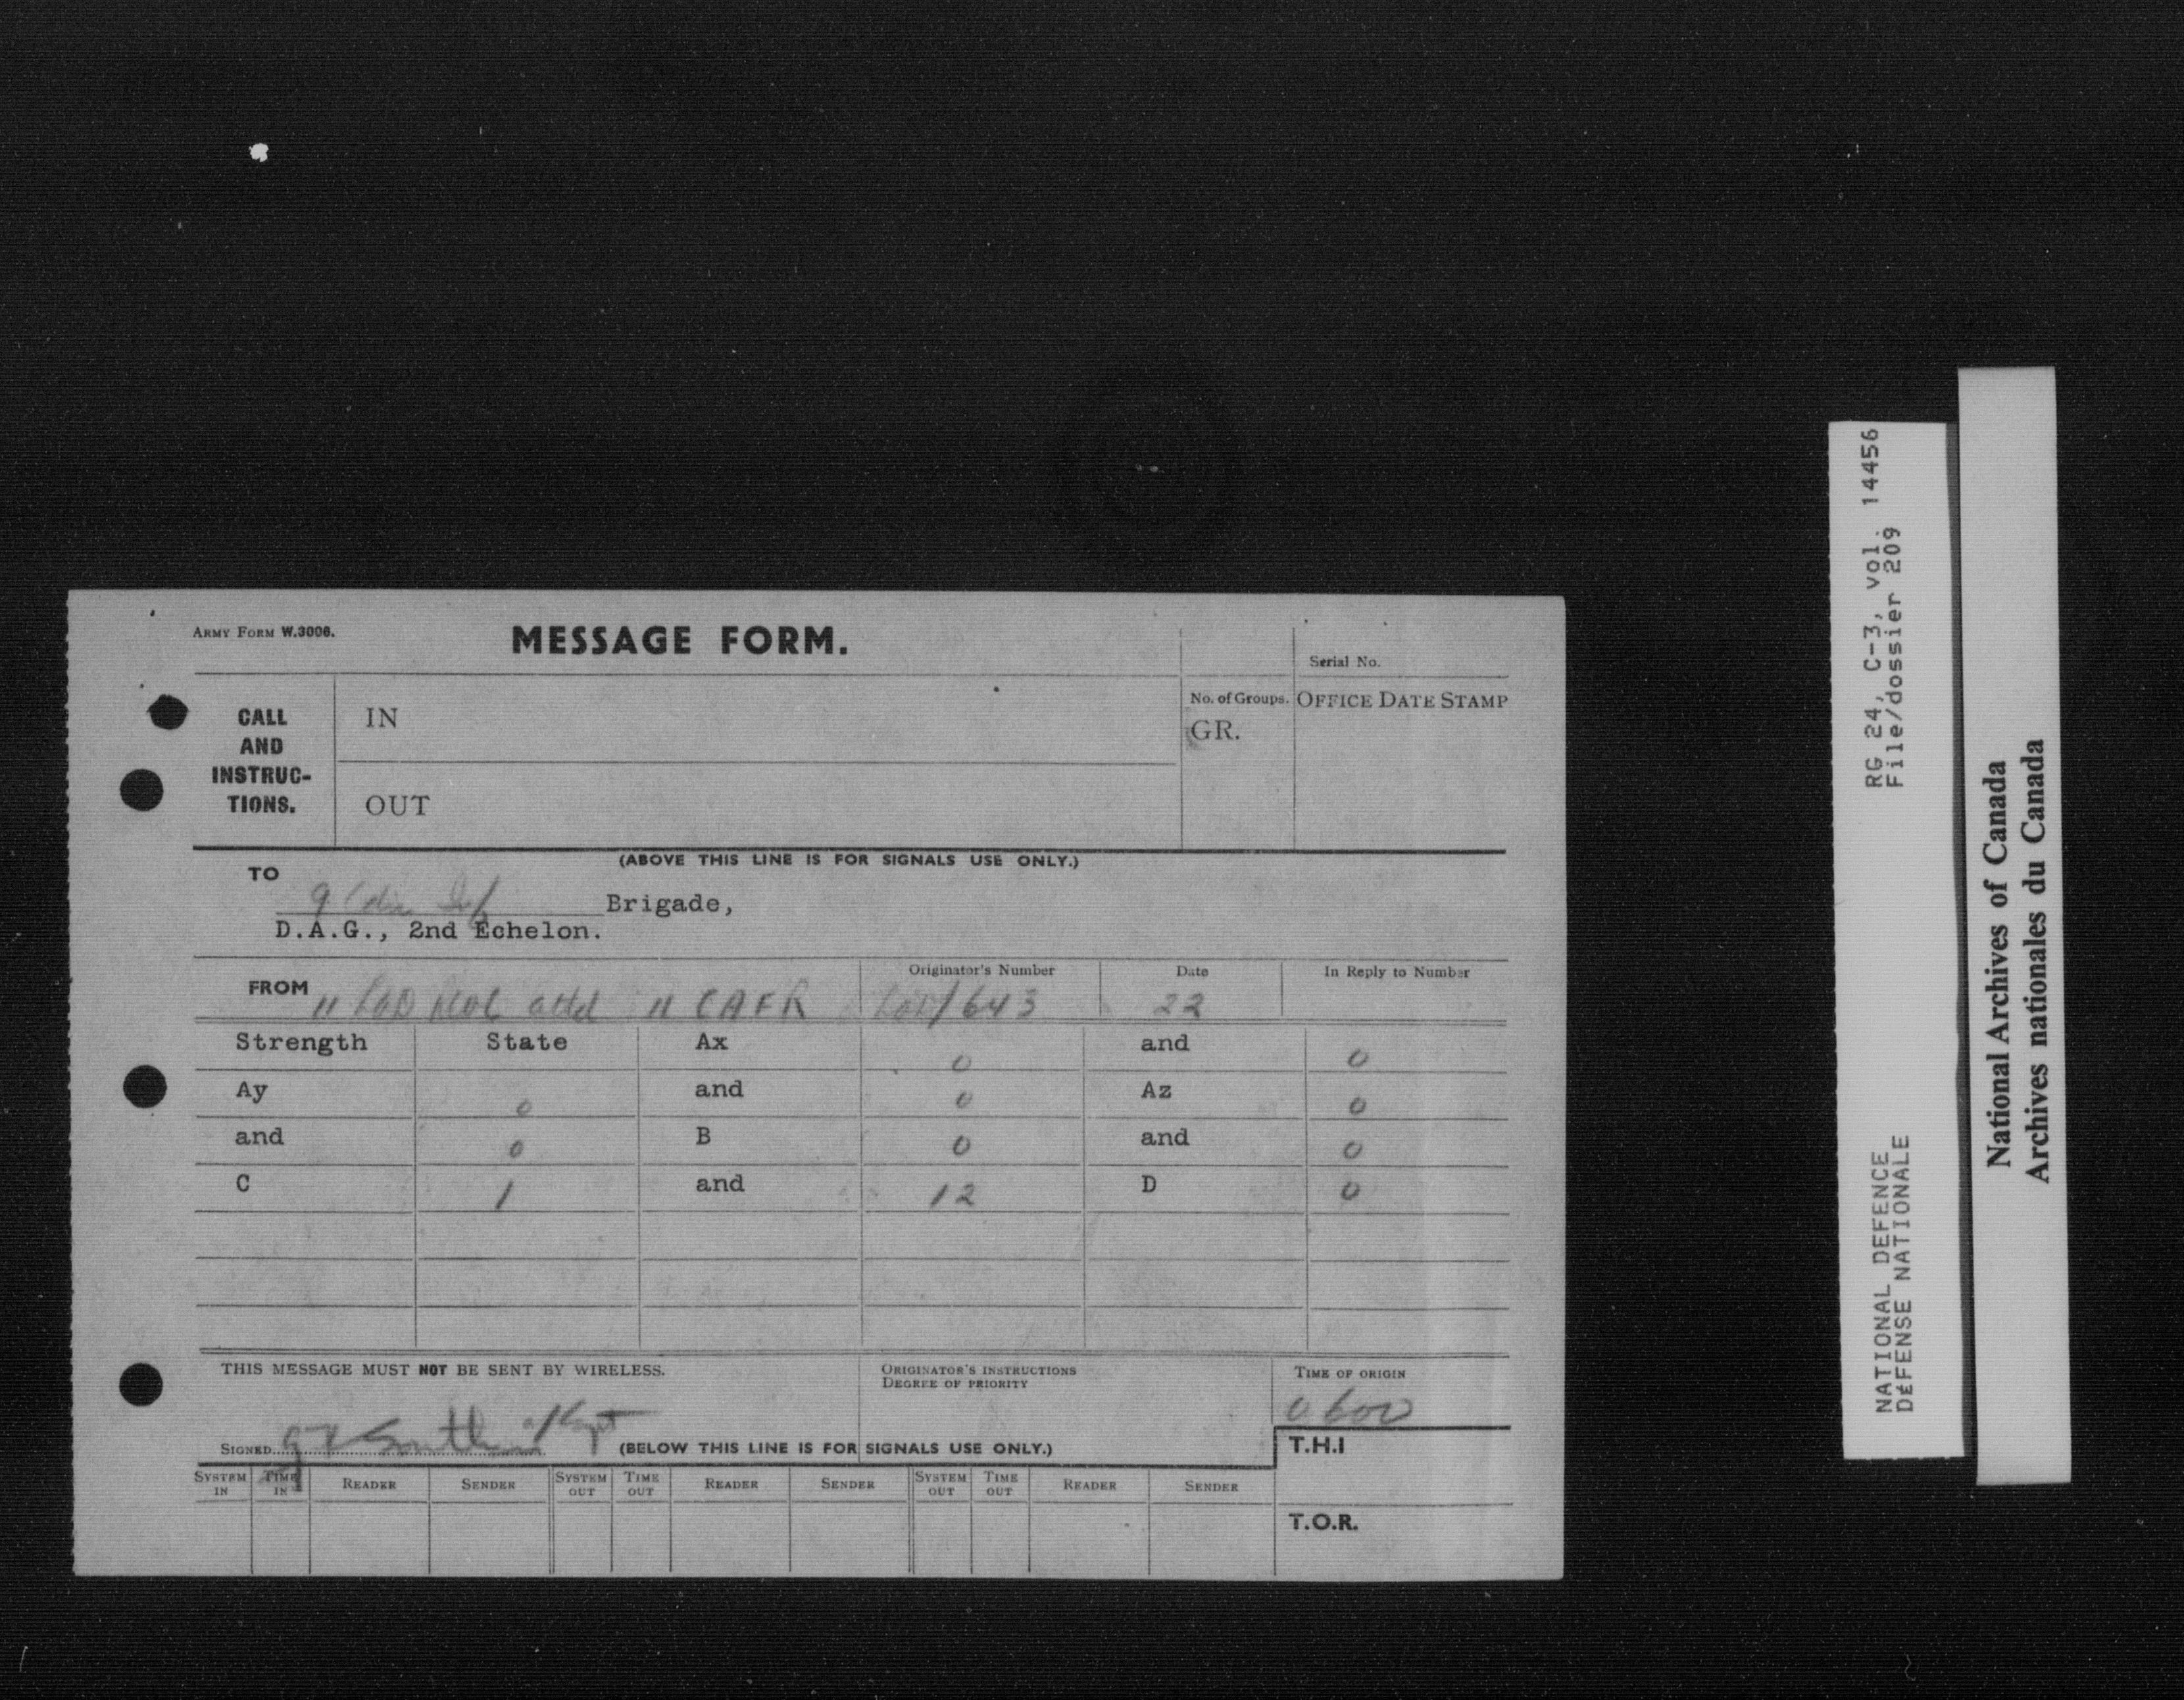 ARMY FORM W.3006.
MESSAGE FORM.
Serial No.
CALL AND INSTRUC-TIONS.
IN
OUT
No. of Groups.
GR.
OFFICE DATE STAMP
(ABOVE THIS LINE IS FOR SIGNALS USE ONLY.)
TO
9 Cdn Inf Brigade,
D.A.G., 2nd Echelon.
FROM 11 LAD attd 11 CAFR
Originator's Number
LAD/643
Date
22
In Reply to Number
Strength State Ax 0 and 0
Ay 0 and 0 Az 0
and 0 B 0 and 0
C 1 and 12 D 0
THIS MESSAGE MUST NOT BE SENT BY WIRELESS.
ORIGINATOR'S INSTRUCTIONS
DEGREE OF PRIORITY
TIME OF ORIGIN
0600
SIGNED
(BELOW THIS LINE IS FOR SIGNALS USE ONLY.)
T.H.I
SYSTEM IN TIME IN READER SENDER SYSTEM OUT TIME OUT READER SENDER SYSTEM OUT TIME OUT READER SENDER
T.O.R.
RG 24, C-3, vol. 14456
File/dossier 209
NATIONAL DEFENCE
DÉFENSE NATIONALE
National Archives of Canada
Archives nationales du Canada